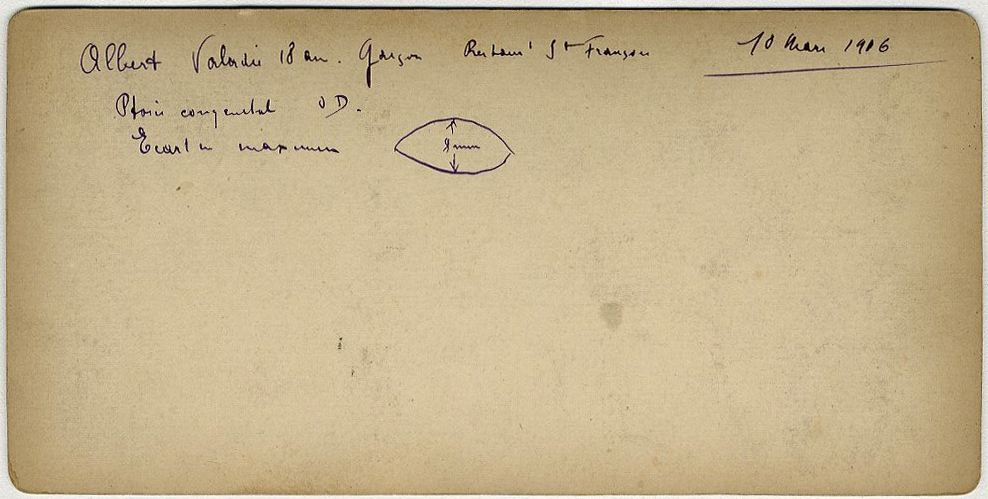 Albert Valadié 18 an. Garçon Restaur^t S^t François
10 Mars 1906
Ptosis congenital OD.
Ecart m maximum
8mm